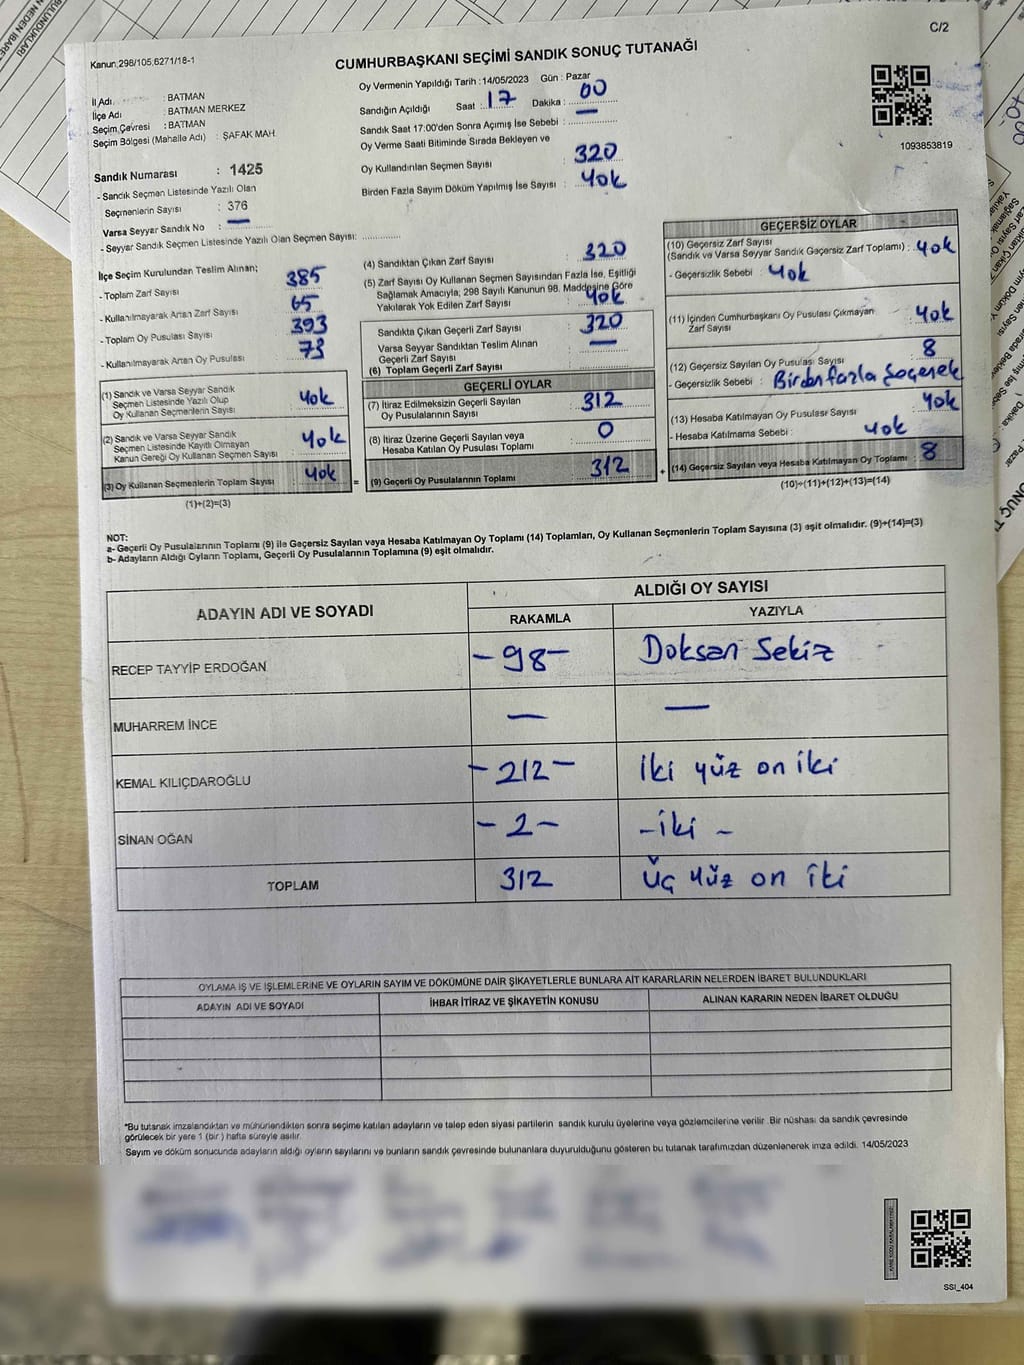 C/2
Kanun:298/105,6271/18-1
CUMHURBAŞKANI SEÇİMİ SANDIK SONUÇ TUTANAĞI
İl Adı : BATMAN
İlçe Adı : BATMAN MERKEZ
Seçim Çevresi : BATMAN
Seçim Bölgesi (Mahalle Adı) : ŞAFAK MAH.
Oy Vermenin Yapıldığı Tarih : 14/05/2023 Gün : Pazar
Sandığın Açıldığı Saat : 17 Dakika : 00
Sandık Saat 17:00'den Sonra Açılmış İse Sebebi : —
Oy Verme Saati Bitiminde Sırada Bekleyen ve
Oy Kullandırılan Seçmen Sayısı : 320
Birden Fazla Sayım Döküm Yapılmış İse Sayısı : Yok
1093853819
Sandık Numarası : 1425
- Sandık Seçmen Listesinde Yazılı Olan
Seçmenlerin Sayısı : 376
Varsa Seyyar Sandık No : —
- Seyyar Sandık Seçmen Listesinde Yazılı Olan Seçmen Sayısı: ..............
İlçe Seçim Kurulundan Teslim Alınan;
- Toplam Zarf Sayısı 385
- Kullanılmayarak Artan Zarf Sayısı 65
- Toplam Oy Pusulası Sayısı 393
- Kullanılmayarak Artan Oy Pusulası 73
(1) Sandık ve Varsa Seyyar Sandık
Seçmen Listesinde Yazılı Olup
Oy Kullanan Seçmenlerin Sayısı : Yok
(2) Sandık ve Varsa Seyyar Sandık
Seçmen Listesinde Kayıtlı Olmayan
Kanun Gereği Oy Kullanan Seçmen Sayısı : Yok
(3) Oy Kullanan Seçmenlerin Toplam Sayısı : Yok
(1)+(2)=(3)
(4) Sandıktan Çıkan Zarf Sayısı : 320
(5) Zarf Sayısı Oy Kullanan Seçmen Sayısından Fazla İse, Eşitliği
Sağlamak Amacıyla; 298 Sayılı Kanunun 98. Maddesine Göre
Yakılarak Yok Edilen Zarf Sayısı : Yok
Sandıkta Çıkan Geçerli Zarf Sayısı : 320
Varsa Seyyar Sandıktan Teslim Alınan
Geçerli Zarf Sayısı : —
(6) Toplam Geçerli Zarf Sayısı :
GEÇERLİ OYLAR
(7) İtiraz Edilmeksizin Geçerli Sayılan
Oy Pusulalarının Sayısı : 312
(8) İtiraz Üzerine Geçerli Sayılan veya
Hesaba Katılan Oy Pusulası Toplamı : 0
(9) Geçerli Oy Pusulalarının Toplamı : 312
GEÇERSİZ OYLAR
(10) Geçersiz Zarf Sayısı
(Sandık ve Varsa Seyyar Sandık Geçersiz Zarf Toplamı) : Yok
- Geçersizlik Sebebi : Yok
(11) İçinden Cumhurbaşkanı Oy Pusulası Çıkmayan
Zarf Sayısı : Yok
(12) Geçersiz Sayılan Oy Pusulası Sayısı : 8
- Geçersizlik Sebebi : Birden fazla Seçenek
(13) Hesaba Katılmayan Oy Pusulası Sayısı : Yok
- Hesaba Katılmama Sebebi : Yok
(14) Geçersiz Sayılan veya Hesaba Katılmayan Oy Toplamı : 8
(10)+(11)+(12)+(13)=(14)
NOT:
a- Geçerli Oy Pusulalarının Toplamı (9) ile Geçersiz Sayılan veya Hesaba Katılmayan Oy Toplamı (14) Toplamları, Oy Kullanan Seçmenlerin Toplam Sayısına (3) eşit olmalıdır. (9)+(14)=(3)
b- Adayların Aldığı Oyların Toplamı, Geçerli Oy Pusulalarının Toplamına (9) eşit olmalıdır.
ADAYIN ADI VE SOYADI
ALDIĞI OY SAYISI
RAKAMLA YAZIYLA
RECEP TAYYİP ERDOĞAN - 98 - Doksan Sekiz
MUHARREM İNCE — —
KEMAL KILIÇDAROĞLU - 212 - iki yüz on iki
SİNAN OĞAN - 2 - - iki -
TOPLAM 312 Üç yüz on iki
OYLAMA İŞ VE İŞLEMLERİNE VE OYLARIN SAYIM VE DÖKÜMÜNE DAİR ŞİKAYETLERLE BUNLARA AİT KARARLARIN NELERDEN İBARET BULUNDUKLARI
ADAYIN ADI VE SOYADI İHBAR İTİRAZ VE ŞİKAYETİN KONUSU ALINAN KARARIN NEDEN İBARET OLDUĞU
*Bu tutanak imzalandıktan ve mühürlendikten sonra seçime katılan adayların ve talep eden siyasi partilerin sandık kurulu üyelerine veya gözlemcilerine verilir. Bir nüshası da sandık çevresinde
görülecek bir yere 1 (bir) hafta süreyle asılır.
Sayım ve döküm sonucunda adayların aldığı oyların sayılarını ve bunların sandık çevresinde bulunanlara duyurulduğunu gösteren bu tutanak tarafımızdan düzenlenerek imza edildi. 14/05/2023
SSI_404